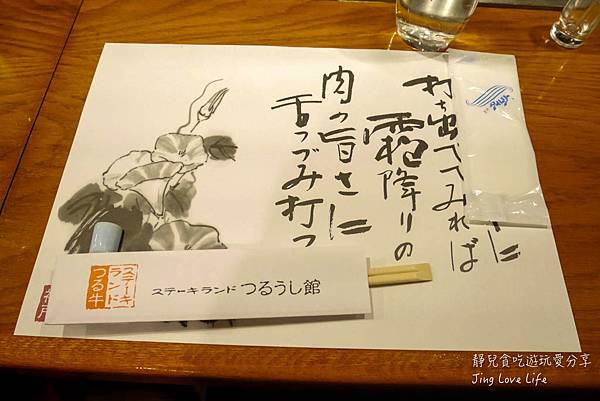 に
打ち出でてみれば
霜降りの
肉の旨さに
舌つづみ打つ
ステーキ
ランド
つる牛
ステーキランド つるうし館
靜兒貪吃遊玩愛分享
Jing Love Life